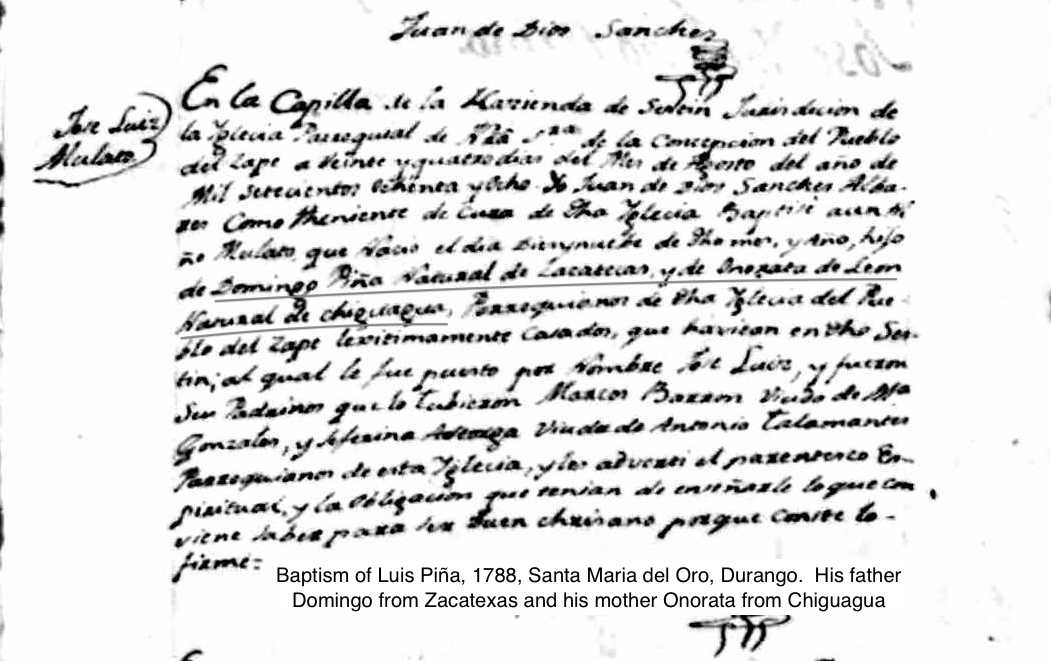 Juan de Dios Sanchez
Jose Luiz
Mulato
En la Capilla de la Hazienda de Sestin Jurisdicion de
la Yglecia Parrequial de Nra Sra de la Concepcion del Pueblo
del Zape a veinte y quatro dias del Mes de Agosto del año de
Mil setecientos ochenta y ocho. Yo Juan de Dios Sanches Alba-
res Como Theniente de Cura de dha Yglecia Baptisé a un Ni
ño Mulato, que Nacio el dia diez y nuebe de dho mes, y año, hijo
de Domingo Piña Natural de Zacatecas, y de Onorata de Leon
Natural de chiguagua, Parrequianos de dha Yglecia del Pue-
blo del Zape lexitimamente Casados, que havitan en dho Ses-
tin; al qual le fue puesto por Nombre Jose Luiz, y fueron
Sus Padrinos que lo tubieron Marcos Barron Viudo de
Gonzales, y Seferina Viuda de Antonio Talamantes
Parrequianos de esta Yglecia, y les adverti el parentesco Es-
piritual, y la Obligacion que tenian de enseñarle lo que con
viene saber para ser buen christano porque conste lo
firmé=
Baptism of Luis Piña, 1788, Santa Maria del Oro, Durango. His father
Domingo from Zacatexas and his mother Onorata from Chiguagua